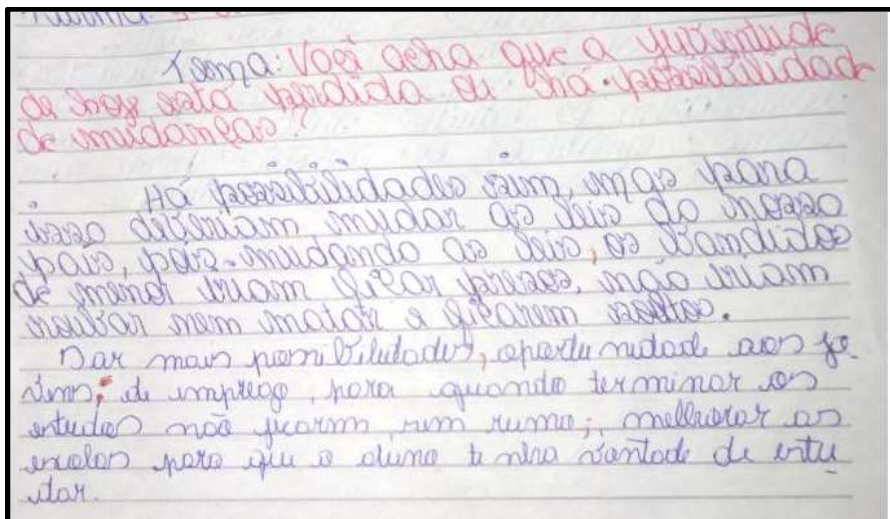 Tema: Você acha que a juventude
de hoje está perdida ou há possibilidade
de mudanças?
Há possibilidades sim, mas para
isso deveriam mudar as leis do nosso
país, pois mudando as leis, os bandidos
de menor iriam ficar presos, não iriam
roubar nem matar e ficarem soltos.
Dar mais possibilidades, oportunidade aos jo
vens, de emprego, para quando terminar os
estudos não ficarem sem rumo; melhorar as
escolas para que o aluno tenha vontade de estu
dar.